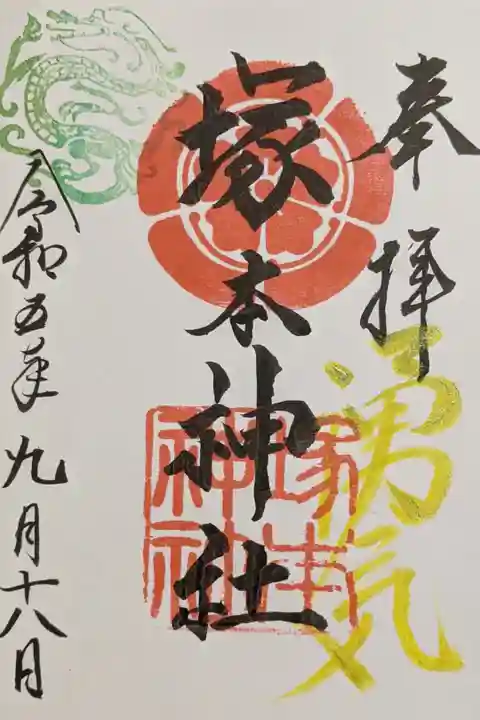 奉拝
湧気
塚本神社
塚本神社
令和五年九月十八日